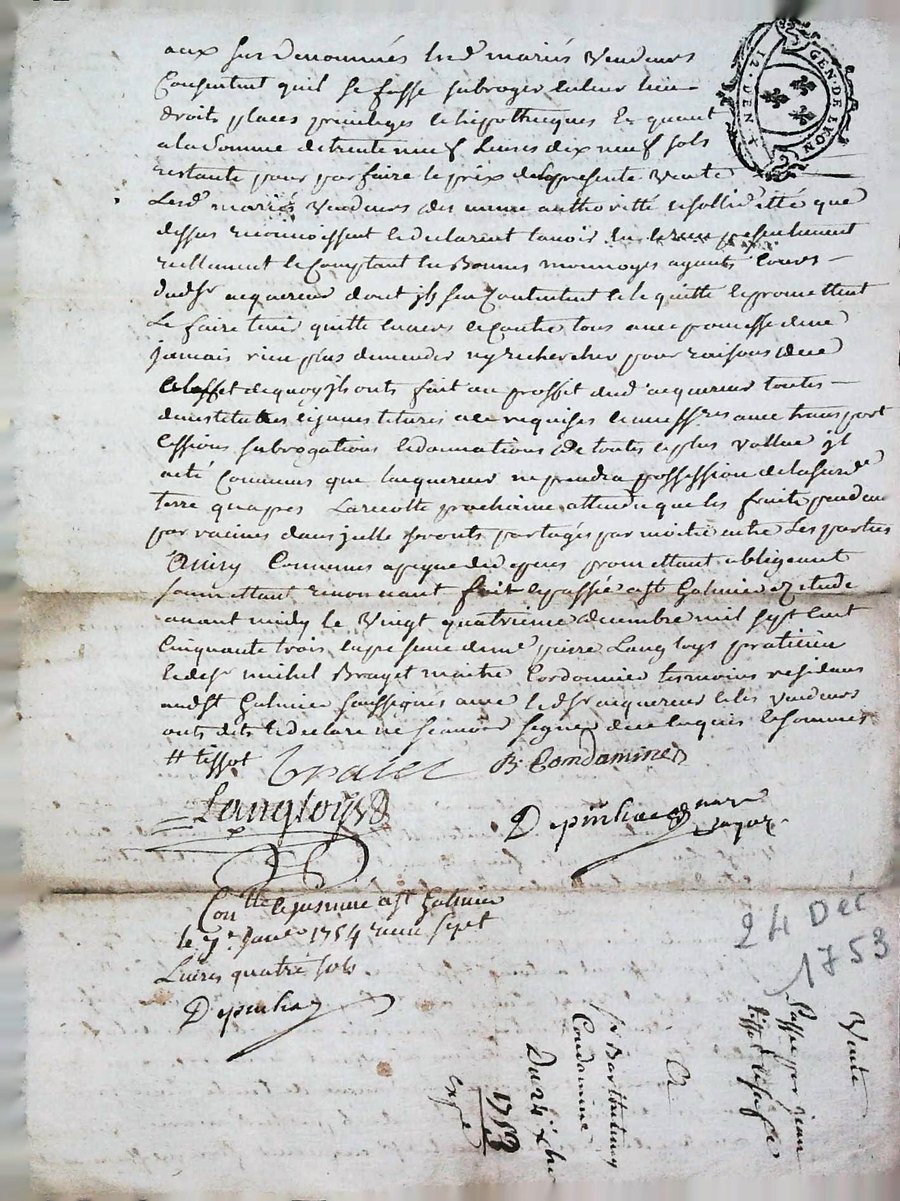 aux sus denommés lesd mariés vendeurs
Consentent quil se fasse subroger en leur lieu
droits places privileges et hipothecques Et quant
a la Somme de trente neuf Livres dix neuf sols
restante pour parfaire le prix de la presente vente
Lesd mariés vendeurs des meme authorité et sollidité que
dessus reconnoissent et declarent lavoir eu et receu presentement
reellement et Comptant en Bonnes monnoyes ayants Cours
dud sr acquereur dont ils sen Contentent et le quitte et promettent
Le faire tenir quitte envers et Contre tous avec promesse de ne
jamais rien plus demander ny rechercher pour raisons de ce
a leffet de quoy ils ont fait au proffet dud acquereur toutes
devestitures et investitures requises et necessres avec transport
Cessions subrogations et donnations de toutes et plus vallue il
a eté Convenus que lacquereur ne prendra possession de la susd
terre quapres La recolte prochaine attendu que les fruits pendans
par racines dans icelle seronts partagés par moitié entre Les parties
Ainsy Convenues a peyne de depens promettant obligeant
soumettant renonçant fait et passé a st Galmier etude
avant midy le vingt quatrieme decembre mil sept cent
Cinquante trois en presence de me pierre Langloys praticien
et de sr michel Brayet maitre Cordonnier temoins residans
aud st Galmier soussignés avec led sr acquereur et les vendeurs
onts dits et declaré ne sçavoir signer de ce enquis et sommés
# tissot
Braiet
B: Condamine
Langloys
Depinhac nore royal
GEN. DE LYON
12. DEN. 4
Conllé et insinué a st Galmier
le 7e janer 1754 receu sept
Livres quatre sols
Depinhac
24 Déc
1753
Vente
Passée par jean
tissot et sa fe
A
sr Barthelemy
Condamine
Du 24 xbre
1753
Exp e